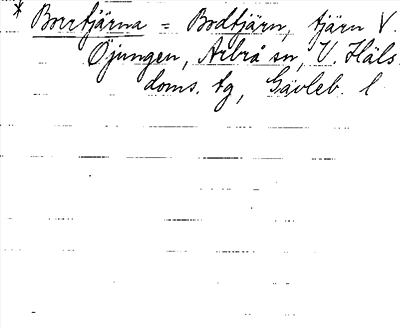 * Borrtjärna = Bodtjärn, tjärn V.
Öjungen, Arbrå sn, V. Häls.
doms. tg, Gävleb. l